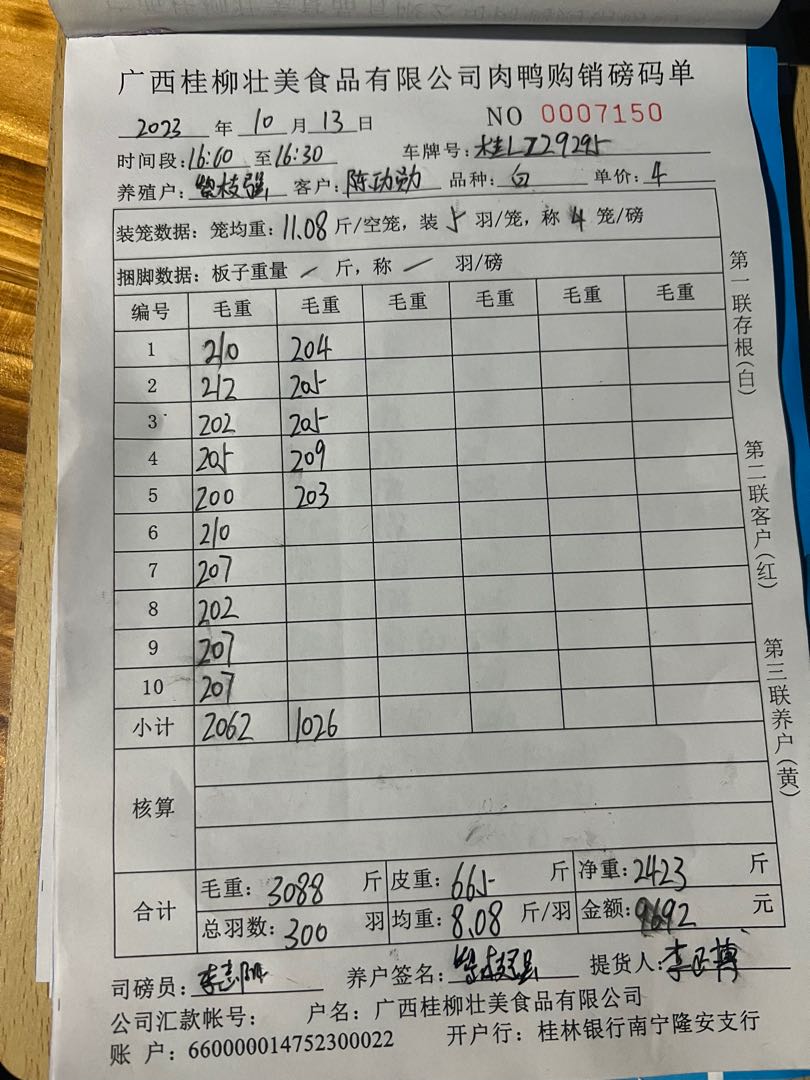 广西桂柳壮美食品有限公司肉鸭购销磅码单
2023 年 10 月 13 日 NO 0007150
时间段:16:00 至16:30 车牌号:桂LZ29295
养殖户: 客户:陈功勋 品种:白 单价:4
装笼数据: 笼均重:11.08斤/空笼,装 5 羽/笼,称 4 笼/磅
捆脚数据: 板子重量 / 斤,称 / 羽/磅
编号 毛重 毛重 毛重 毛重 毛重 毛重
1 210 204
2 212 205
3 202 205
4 205 209
5 200 203
6 210
7 207
8 202
9 207
10 207
小计 2062 1026
核算
合计 毛重: 3088 斤 皮重: 665 斤 净重:2423 斤
总羽数: 300 羽 均重:8.08 斤/羽 金额:9692 元
司磅员: 养户签名: 提货人:
公司汇款帐号: 户名:广西桂柳壮美食品有限公司
账 户:660000014752300022 开户行:桂林银行南宁隆安支行
第一联存根(白)
第二联客户(红)
第三联养户(黄)